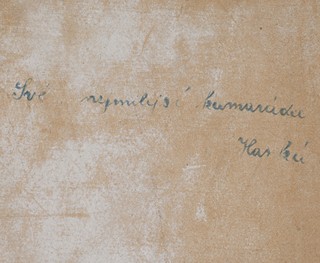 Své nejmilejší kamarádce
Hanka